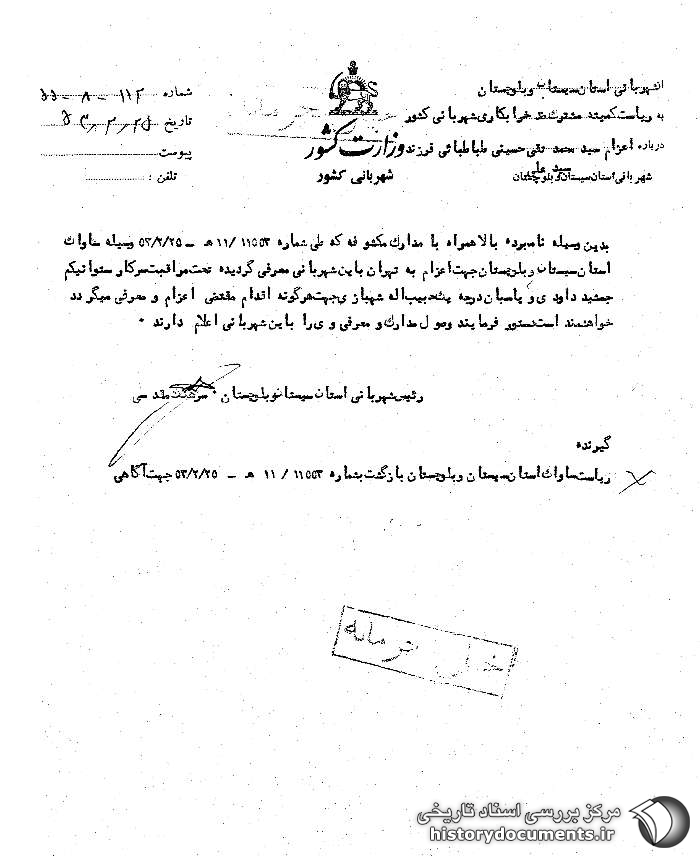 از شهربانی استان سیستان و بلوچستان
به ریاست کمیته مشترک ضد خرابکاری شهربانی کشور
درباره اعزام سید محمد تقی حسینی طباطبائی فرزند
سید علی
شهربانی استان سیستان و بلوچستان
وزارت کشور
شهربانی کشور
شماره ۱۱۲ - ۸ - ۵۵
تاریخ ۵۳/۲/۲۵
پیوست
تلفن :
بدین وسیله نامبرده بالا همراه با مدارک مکشوفه که طی شماره ۱۱۵۵۳ / ۱۱ هـ – ۵۳/۲/۲۵ وسیله ساواک
استان سیستان و بلوچستان جهت اعزام به تهران باین شهربانی معرفی گردیده تحت مراقبت سرکار ستوانیکم
جمشید داودی و پاسبان درجه یک حبیب اله شهبازی جهت هرگونه اقدام مقتضی اعزام و معرفی میگردد
خواهشمند است دستور فرمایند وصول مدارک و معرفی وی را باین شهربانی اعلام دارند ۰
رئیس شهربانی استان سیستان و بلوچستان ۰ سرهنگ مقدسی
گیرنده
ریاست ساواک استان سیستان و بلوچستان بازگشت بشماره ۱۱۵۵۳ / ۱۱ هـ – ۵۳/۲/۲۵ جهت آگاهی
خیلی محرمانه
مرکز بررسی اسناد تاریخی
historydocuments.ir